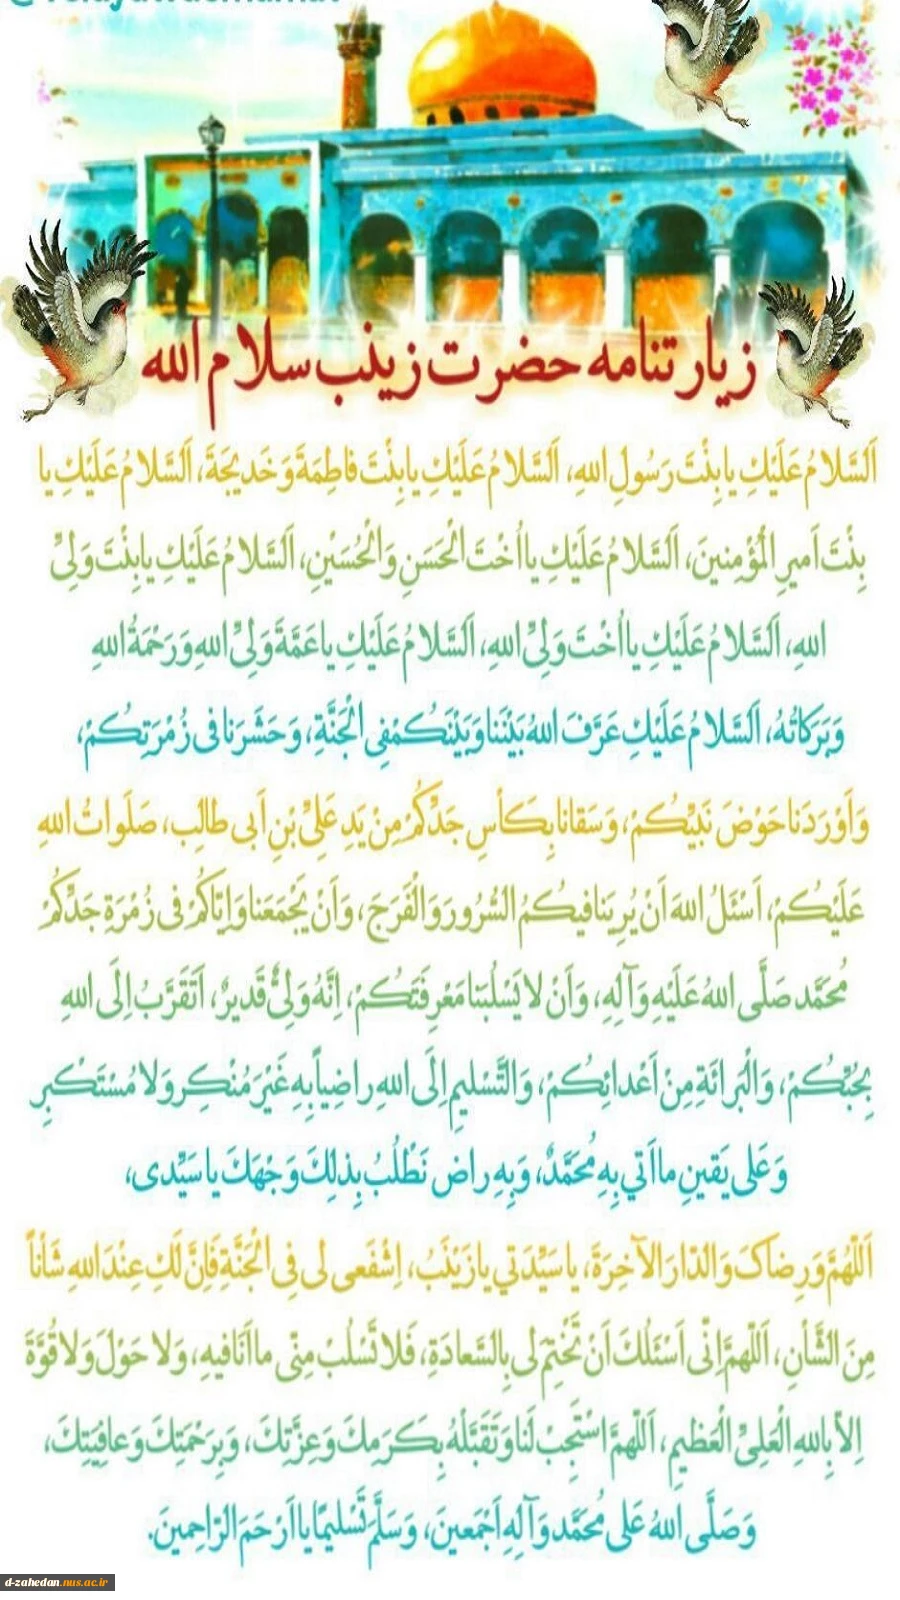 زیارتنامه حضرت زینب سلام الله
اَلسَّلامُ عَلَيْكِ يا بِنْتَ رَسُولِ اللهِ، اَلسَّلامُ عَلَيْكِ يا بِنْتَ فاطِمَةَ وَ خَديجَةَ، اَلسَّلامُ عَلَيْكِ يا
بِنْتَ اَميرِ الْمُؤْمِنينَ، اَلسَّلامُ عَلَيْكِ يا اُخْتَ الْحَسَنِ وَ الْحُسَيْنِ، اَلسَّلامُ عَلَيْكِ يا بِنْتَ وَلِىِّ
اللهِ، اَلسَّلامُ عَلَيْكِ يا اُخْتَ وَلِىِّ اللهِ، اَلسَّلامُ عَلَيْكِ يا عَمَّةَ وَلِىِّ اللهِ وَ رَحْمَةُ اللهِ
وَ بَرَكاتُهُ، اَلسَّلامُ عَلَيْكِ عَرَّفَ اللهُ بَيْنَنا وَ بَيْنَكُمْ فِى الْجَنَّةِ، وَ حَشَرَنا فى زُمْرَتِكُمْ،
وَ اَوْرَدَنا حَوْضَ نَبِيِّكُمْ، وَ سَقانا بِكَأْسِ جَدِّكُمْ مِنْ يَدِ عَلِىِّ بْنِ اَبى طالِب، صَلَواتُ اللهِ
عَلَيْكُمْ، اَسْئَلُ اللهَ اَنْ يُرِيَنا فيكُمُ السُّرُورَ وَ الْفَرَجَ، وَ اَنْ يَجْمَعَنا وَ اِيّاكُمْ فى زُمْرَةِ جَدِّكُمْ
مُحَمَّد صَلَّى اللهُ عَلَيْهِ وَ آلِهِ، وَ اَنْ لا يَسْلُبَنا مَعْرِفَتَكُمْ، اِنَّهُ وَلِىٌّ قَديرٌ، اَتَقَرَّبُ اِلَى اللهِ
بِحُبِّكُمْ، وَ الْبَرائَةِ مِنْ اَعْدائِكُمْ، وَ التَّسْليمِ اِلَى اللهِ راضِياً بِهِ غَيْرَ مُنْكِر وَ لا مُسْتَكْبِر
وَ عَلى يَقينِ ما اَتي بِهِ مُحَمَّدٌ، وَ بِهِ راض نَطْلُبُ بِذلِكَ وَجْهَكَ يا سَيِّدى،
اَللّهُمَّ وَ رِضاكَ وَ الدّارَ الآخِرَةَ، يا سَيِّدَتي يا زَيْنَبُ، اِشْفَعى لى فِى الْجَنَّةِ فَاِنَّ لَكِ عِنْدَ اللهِ شَأْناً
مِنَ الشَّأْنِ، اَللّهمَّ اِنّى اَسْئَلُكَ اَنْ تَخْتِمَ لى بِالسَّعادَةِ، فَلا تَسْلُبْ مِنّى ما اَنَا فيهِ، وَ لا حَوْلَ وَ لا قُوَّةَ
اِلاّ بِاللهِ الْعَلِىِّ الْعَظيمِ، اَللّهمَّ اسْتَجِبْ لَنا وَ تَقَبَّلْهُ بِكَرَمِكَ وَ عِزَّتِكَ، وَ بِرَحْمَتِكَ وَ عافِيَتِكَ،
وَ صَلَّى اللهُ عَلى مُحَمَّد وَ آلِهِ اَجْمَعينَ، وَ سَلَّمَ تَسْليمًا يا اَرْحَمَ الرّاحِمينَ.
d-zahedan.nus.ac.ir